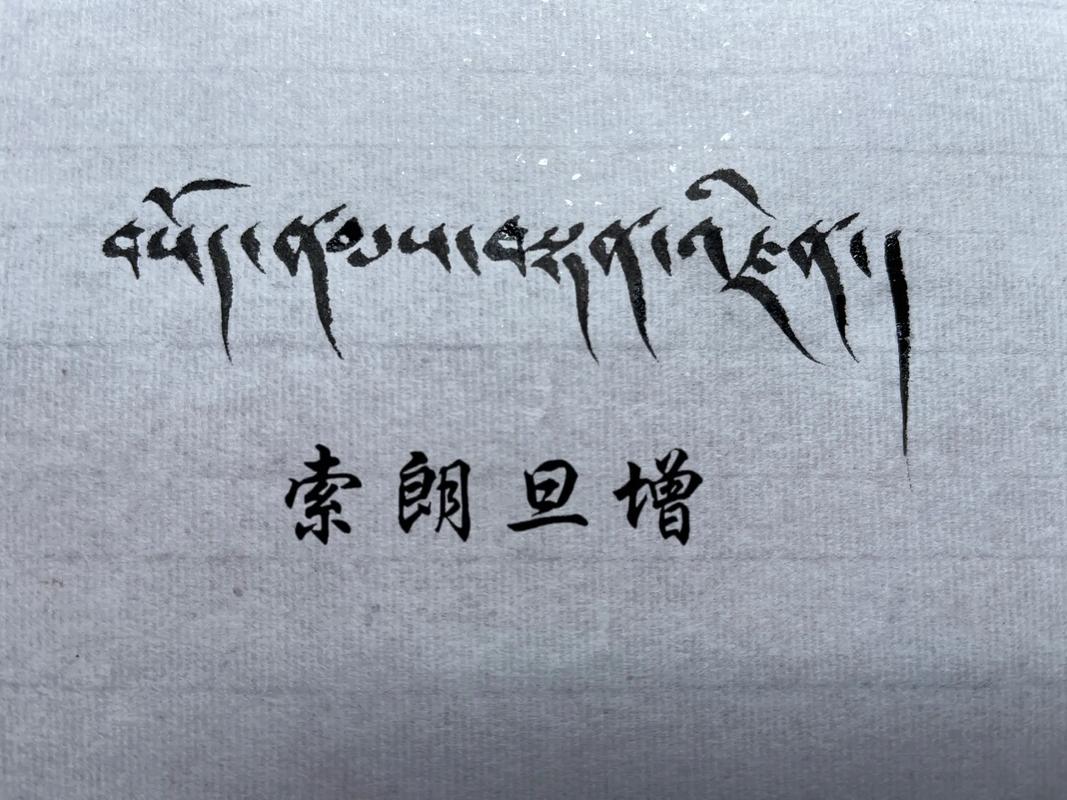 བསོད་ནམས་བསྟན་འཛིན།
索朗旦增